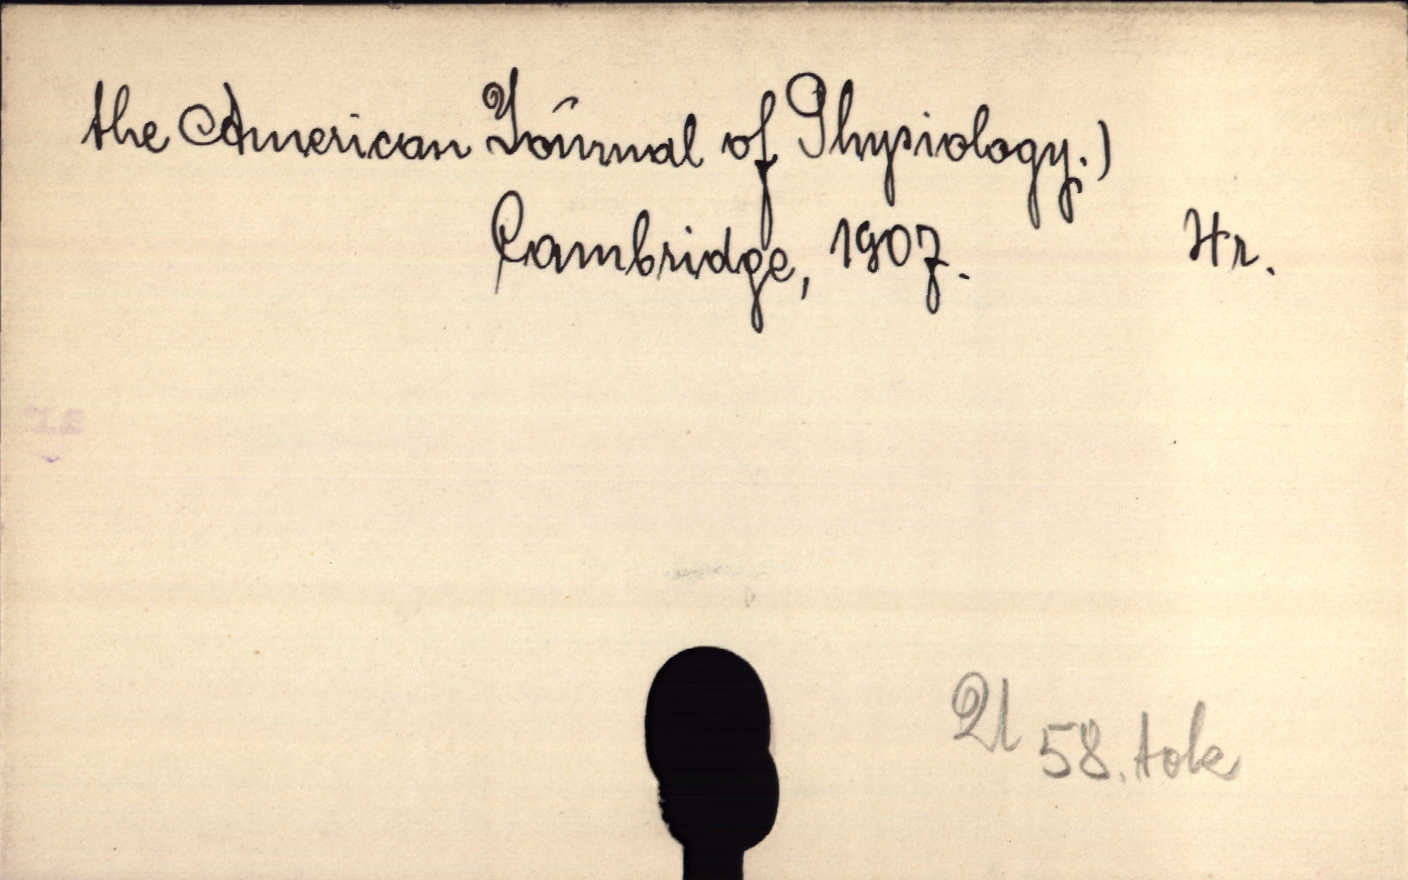 the American Journal of Physiology.)
Cambridge, 1907. Hr.
58. tok